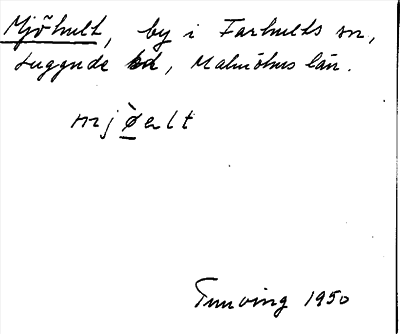 Mjöhult, by i Farhults sn,
Luggude hd, Malmöhus län.
mjø̀ₑlt
Tunving 1950